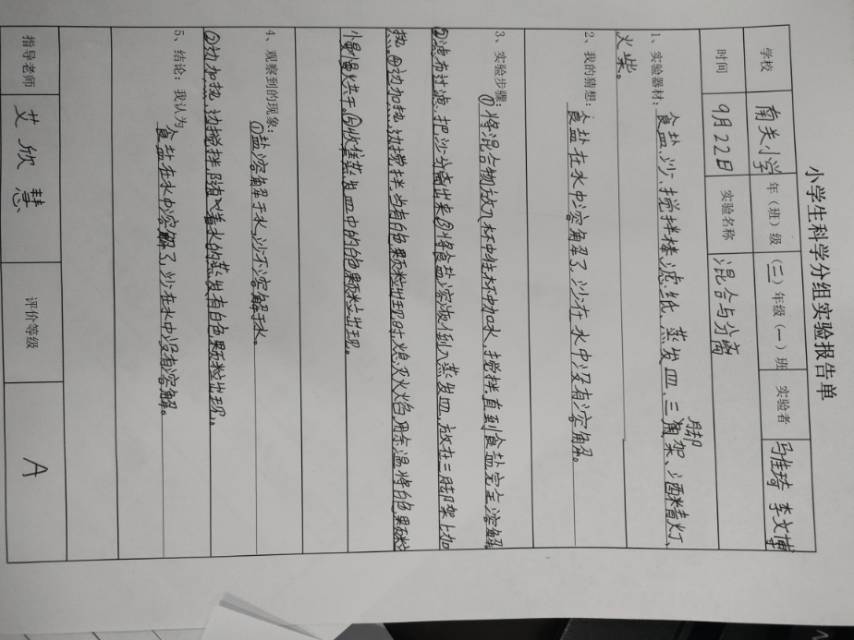 小学生科学分组实验报告单
学校 南关小学 年（班）级 （三）年级（一）班 实验者 马佳琦 李文博
时间 9月22日 实验名称 混合与分离
1、实验器材：食盐、沙、搅拌棒、滤纸、蒸发皿、三脚架、酒精灯、
火柴。
2、我的猜想：食盐在水中溶解了，沙在水中没有溶解。
3、实验步骤：①将混合物放入杯中往杯中加水，搅拌直到食盐完全溶解
②滤布过滤，把沙分离出来③将食盐溶液倒入蒸发皿，放在三脚架上加
热，④边加热，边搅拌，当有白色颗粒出现时，熄灭火焰，用余温将白色颗粒
小剩慢火烘干。⑤收集蒸发皿中的白色颗粒出现。
4、观察到的现象：①盐溶解于水，沙不溶解于水。
②边加热，边搅拌，随着水的蒸发有白色颗粒出现。
5、结论：我认为 食盐在水中溶解了，沙在水中没有溶解。
指导老师 艾欣慧 评价等级 A